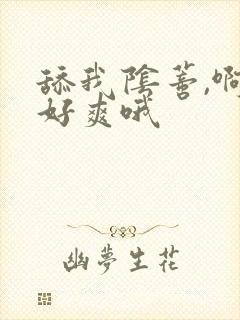 舔我阴蒂,啊
好爽哦
幽夢生花